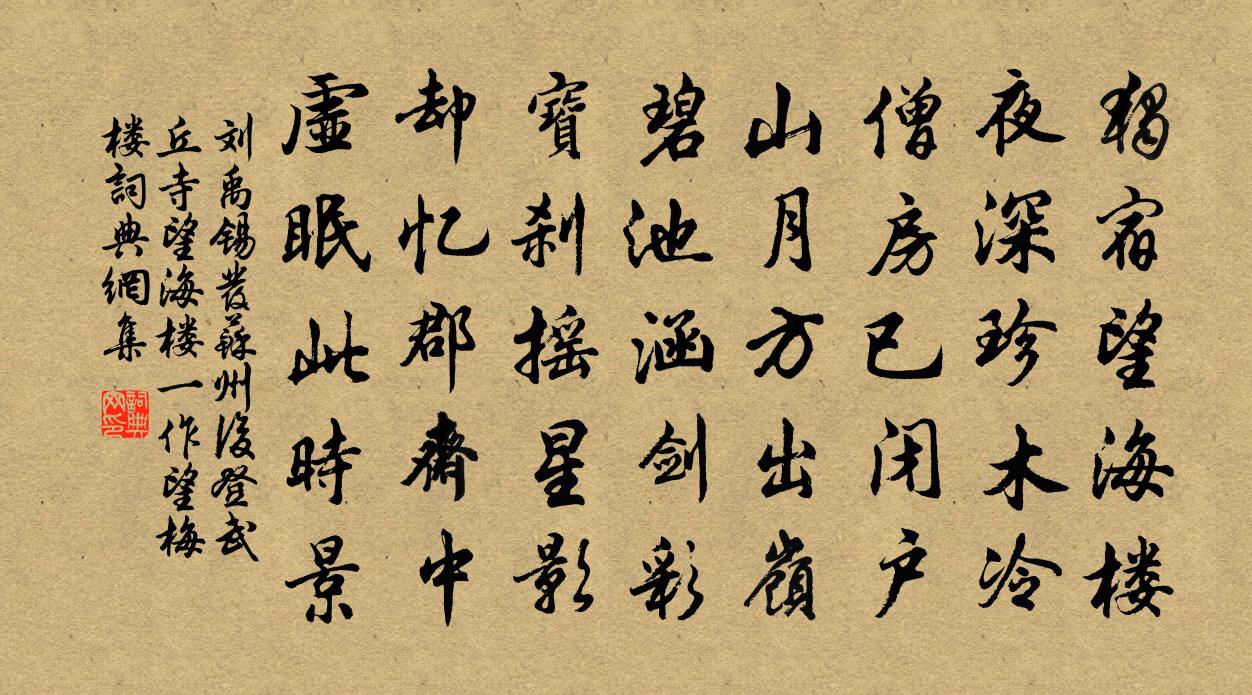 獨宿望海楼
夜深珍木冷
僧房已闭户
山月方出嶺
碧池涵剑彩
寶刹摇星影
却忆郡齋中
虚眠此時景
刘禹锡發蘇州後登武
丘寺望海楼一作望梅
楼詞典網集
詞典网印